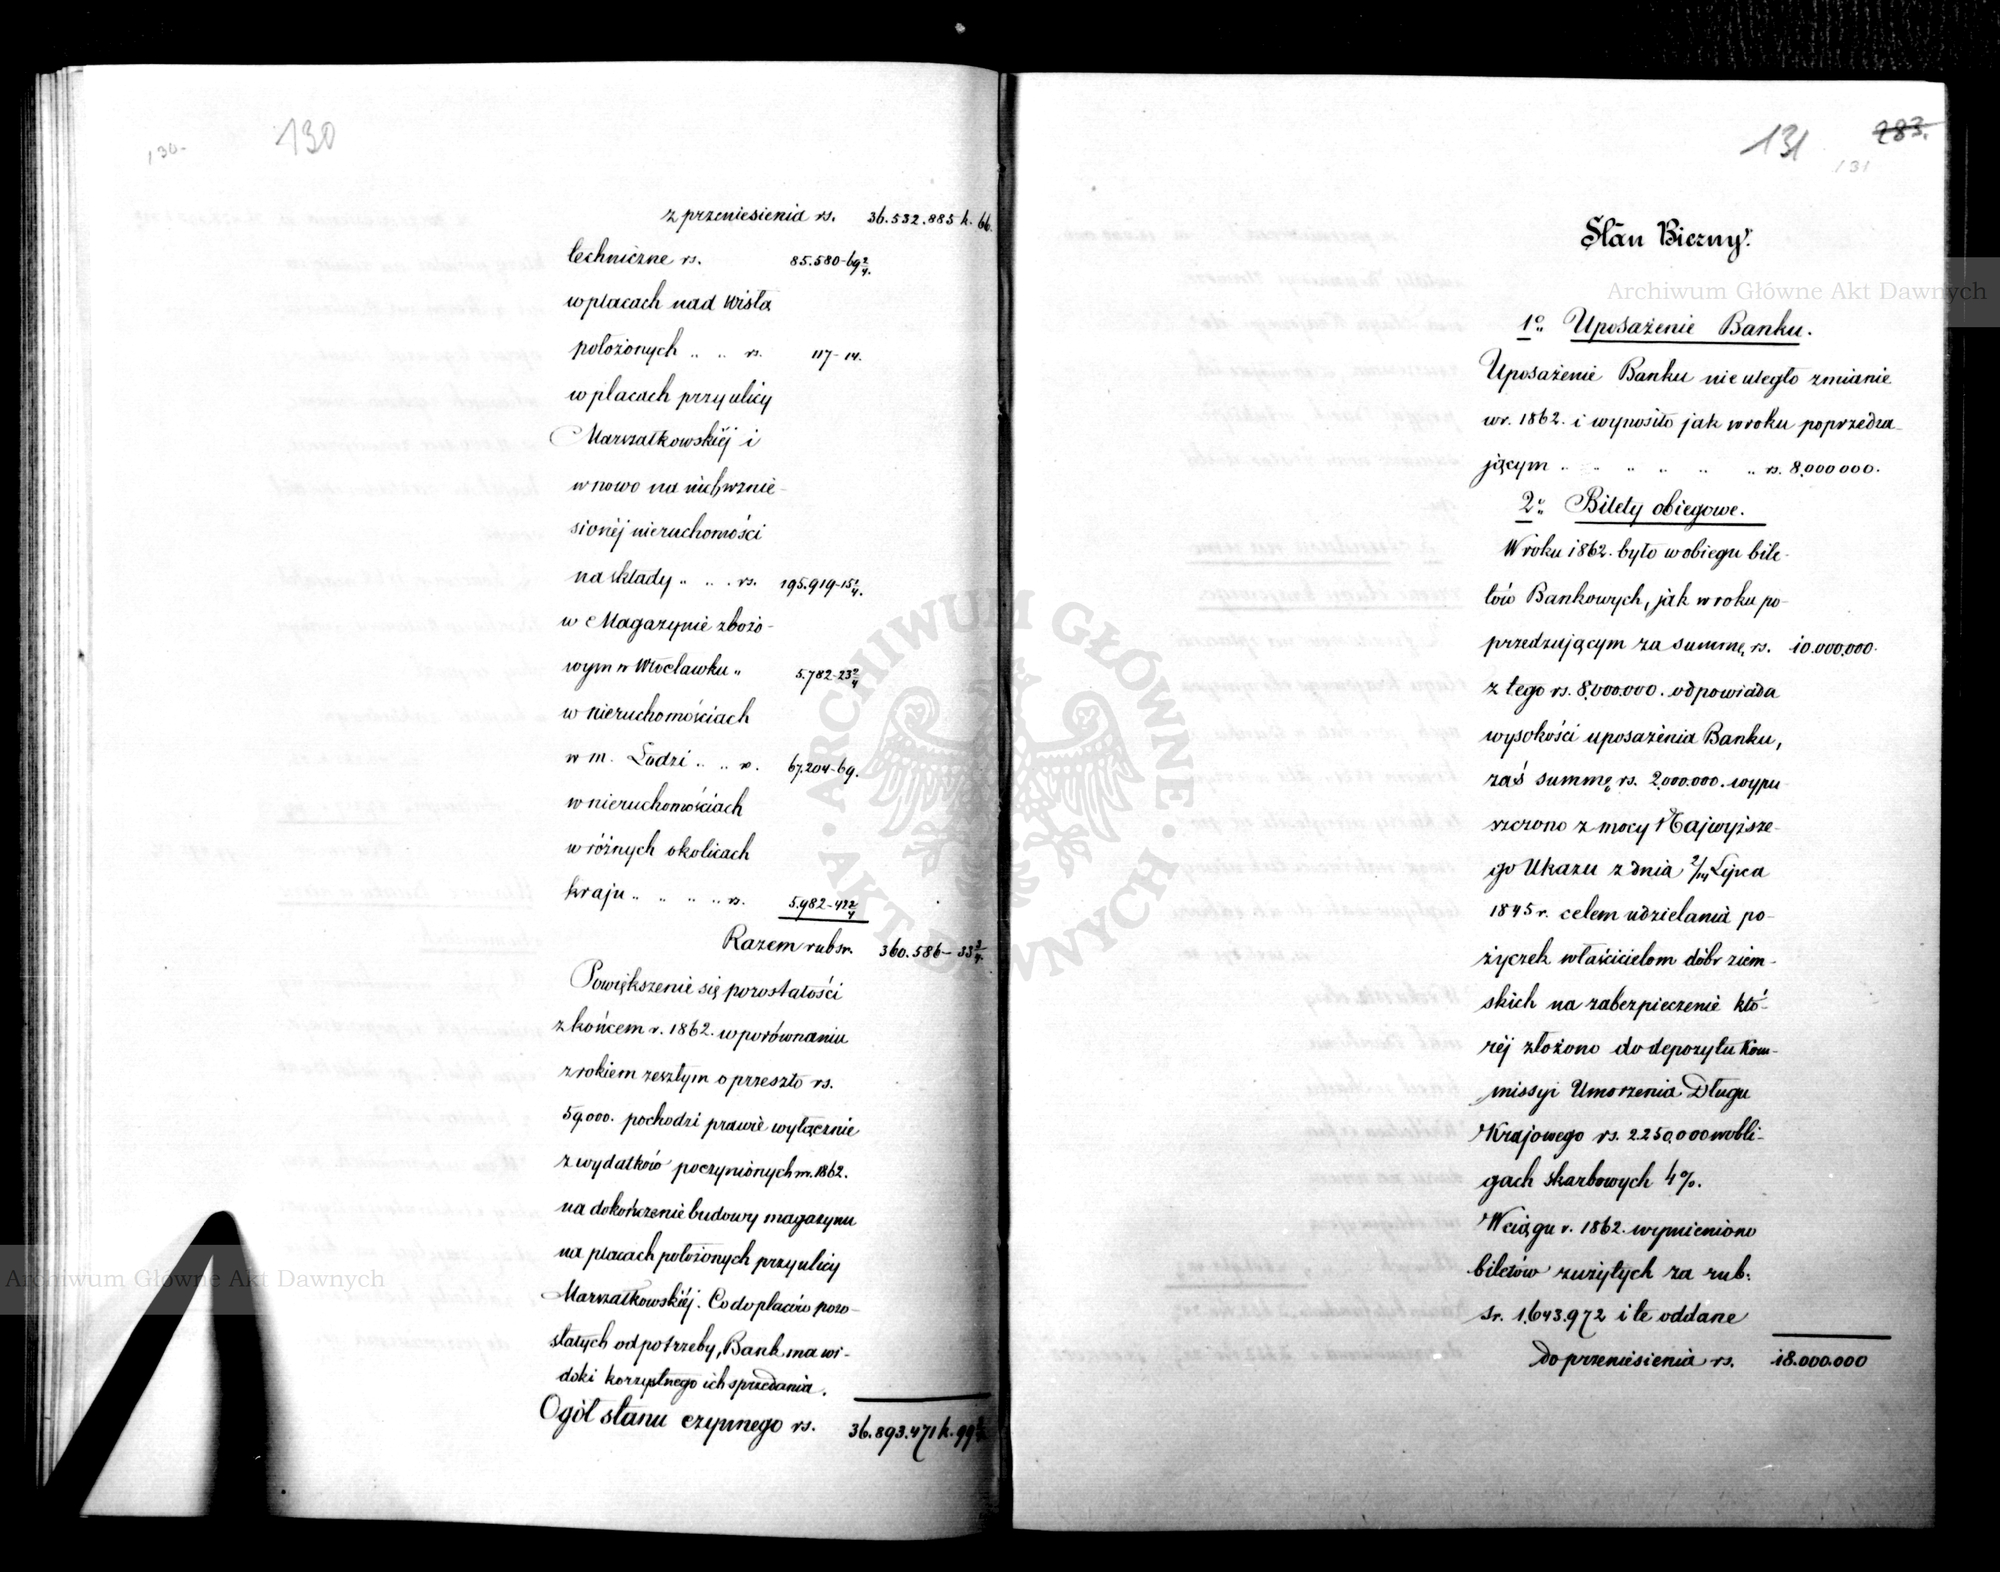 130-
130
z przeniesienia rs. 36.532.885 k. 66.
techniczne rs. 85.580-69 2/4.
w placach nad Wisłą
położonych „ „ rs. 117-14.
w placach przy ulicy
Marszałkowskiéj i
w nowo na nich wznie-
sionéj nieruchomości
na składy „ „ . rs. 195.919-15 2/4.
w Magazynie zbożo-
wym w Włocławku „ 5.782-23 2/4
w nieruchomościach
w m. Łodzi „ „ rs. 67.204-69.
w nieruchomościach
w różnych okolicach
kraju „ „ „ „ rs. 5.982-42 2/4
Razem rub sr. 360.586-33 3/4.
Powiększenie się pozostałości
z końcem r. 1862. w porównaniu
z rokiem zeszłym o przeszło rs.
59.000. pochodzi prawie wyłącznie
z wydatków poczynionych w r. 1862.
na dokończenie budowy magazynu
na placach położonych przy ulicy
Marszałkowskiéj. Co do placów pozo-
stałych od potrzeby, Bank ma wi-
doki korzystnego ich sprzedania.
Ogół stanu czynnego rs. 36.893.471 k. 99
131
131
283.
Stan Bierny.
1o Uposażenie Banku.
Uposażenie Banku nie uległo zmianie
w r. 1862. i wynosiło jak w roku poprzedza-
jącym „ „ „ „ „ „ rs. 8.000.000.
2o Bilety obiegowe.
W roku 1862. było w obiegu bile-
tów Bankowych, jak w roku po-
przedzającym za summę rs. 10.000.000.
z tego rs. 8.000.000. odpowiada
wysokości uposażenia Banku,
zaś summę rs. 2.000.000. wypu-
szczono z mocy Najwyższe-
go Ukazu z dnia 2/14 Lipca
1845 r. celem udzielania po-
życzek właścicielom dóbr ziem-
skich na zabezpieczenie któ-
réj złożono do depozytu Kom-
missyi Umorzenia Długu
Krajowego rs. 2.250.000 w obli-
gach skarbowych 4%.
W ciągu r. 1862. wymieniono
biletów zużytych za rub:
sr. 1.643.972 i te oddane
do przeniesienia rs. 18.000.000
Archiwum Główne Akt Dawnych
Archiwum Główne Akt Dawnych
ARCHIWUM GŁÓWNE
AKT DAWNYCH